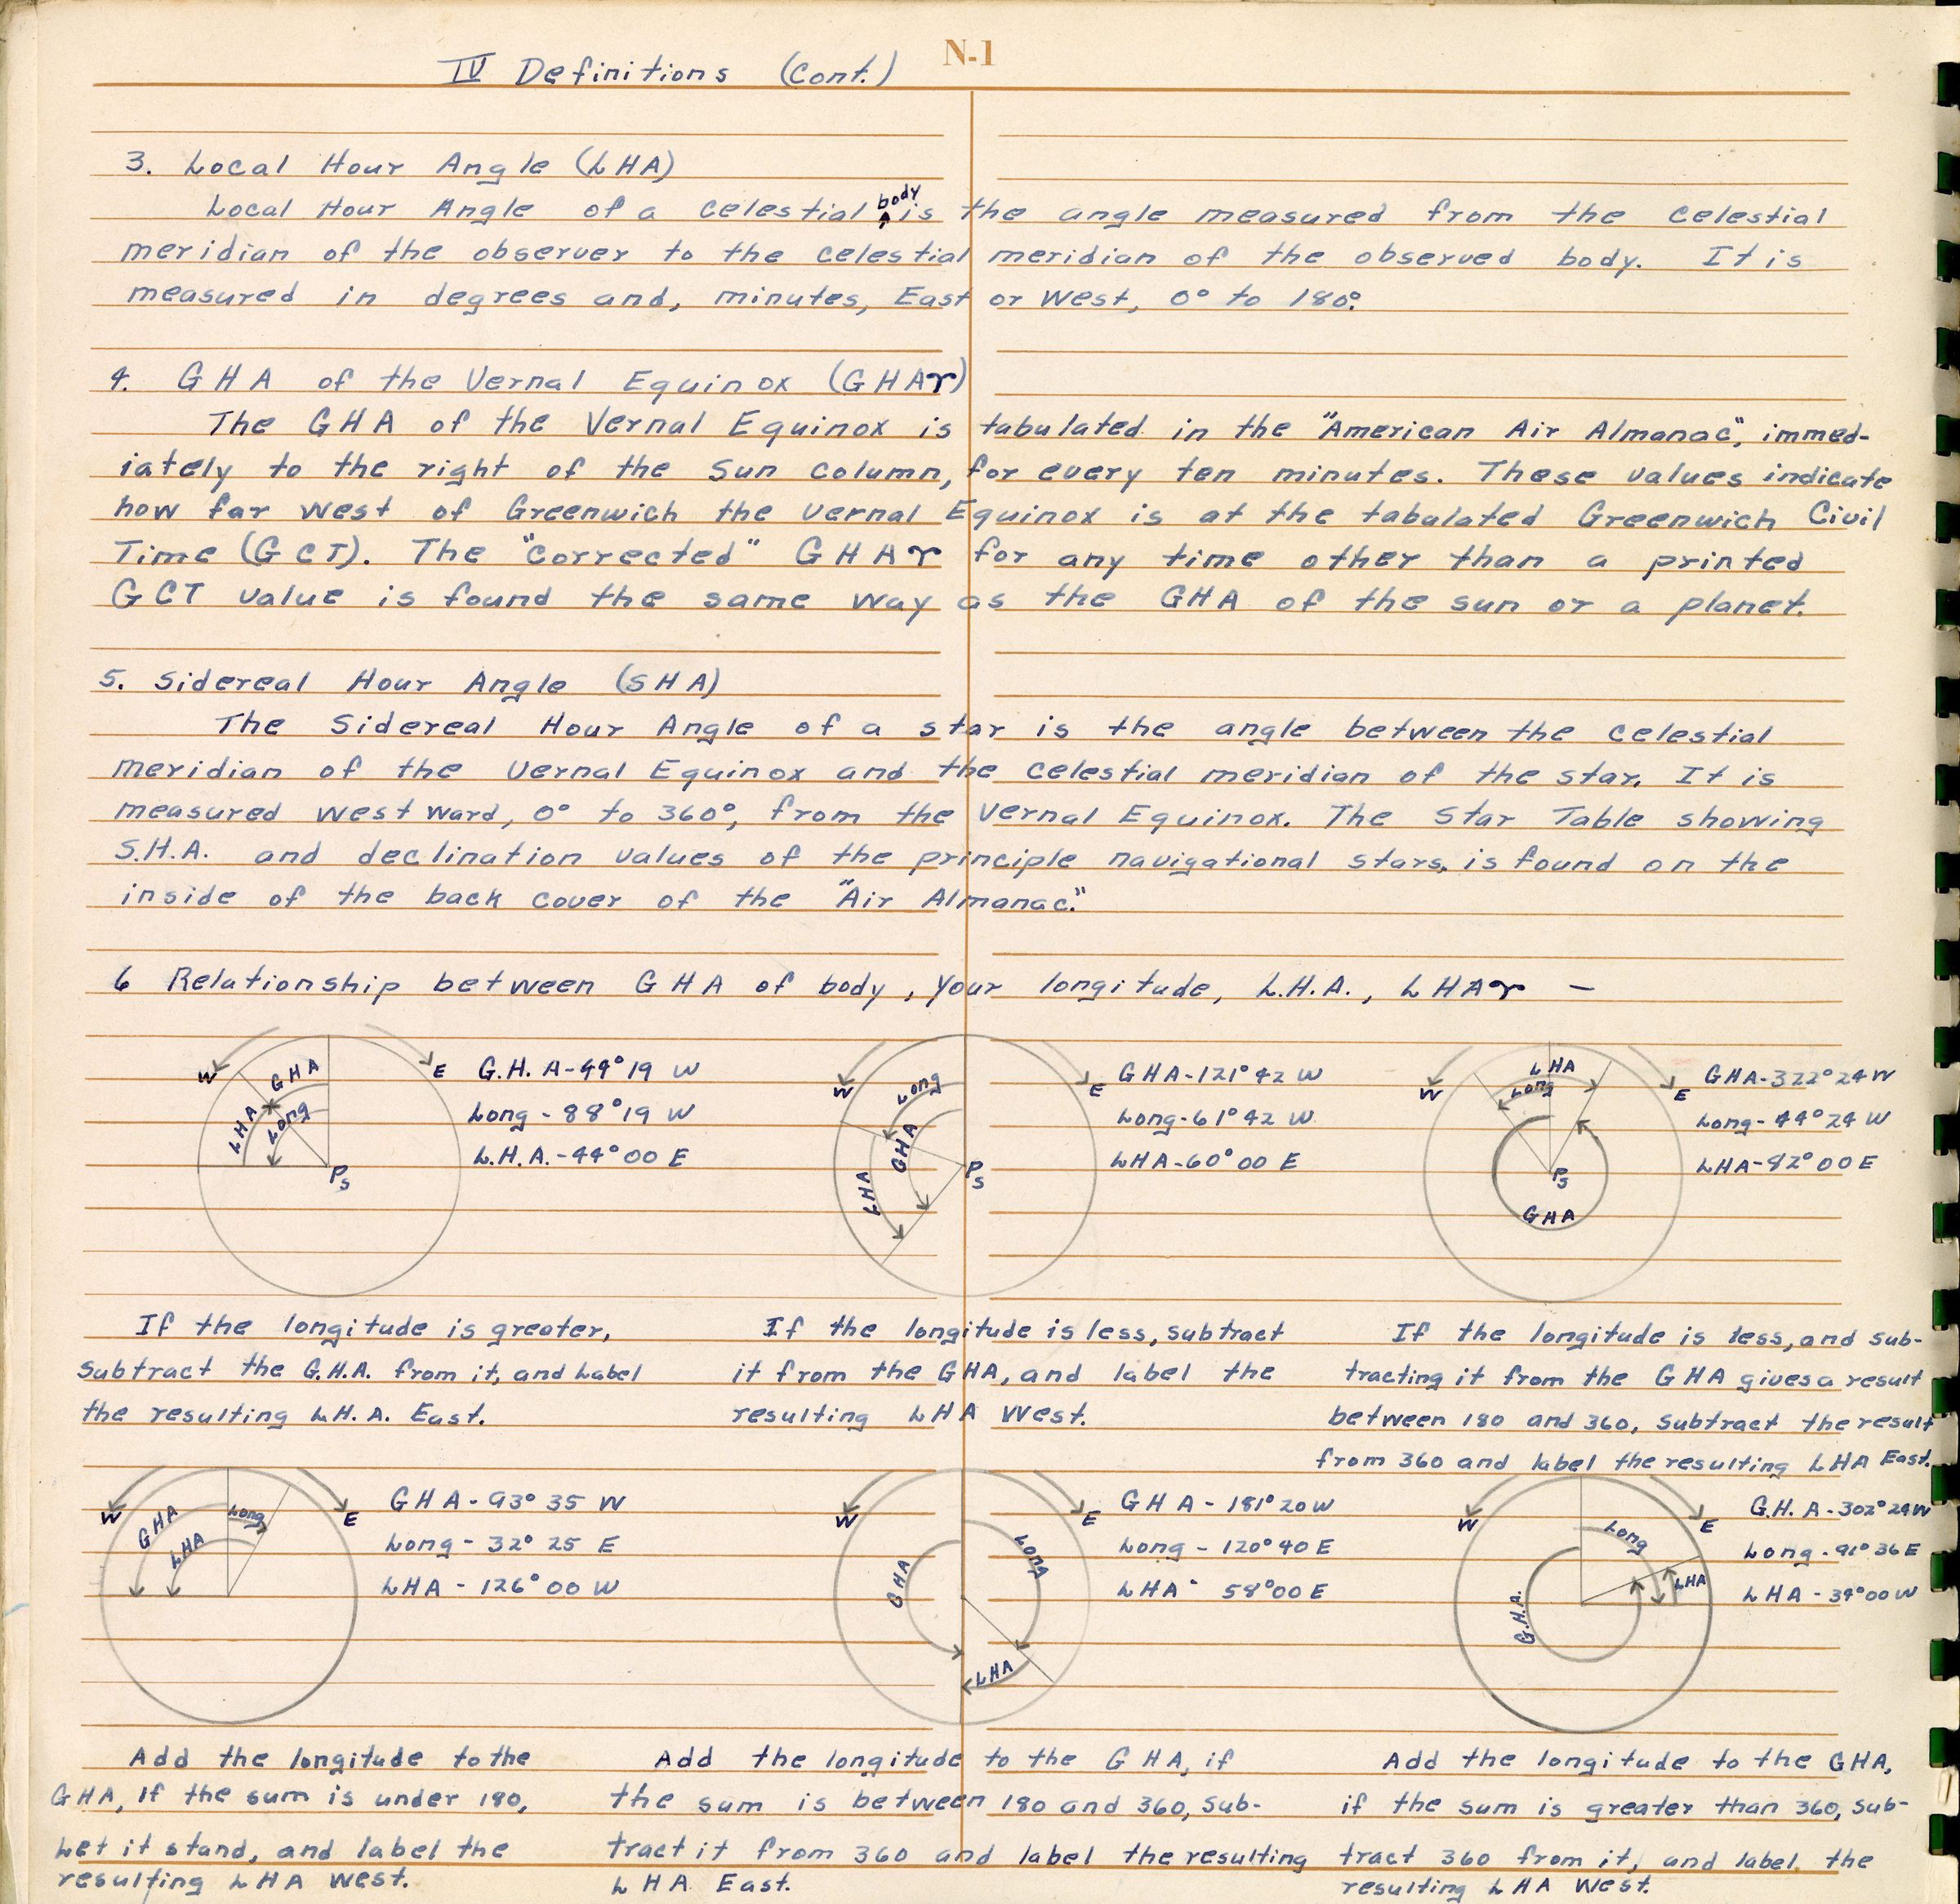 N-1
IV Definitions (Cont.)
3. Local Hour Angle (LHA)
body
Local Hour Angle of a celestial is the angle measured from the celestial
meridian of the observer to the celestial meridian of the observed body. It is
measured in degrees and, minutes, East or West, 0° to 180°.
4. GHA of the Vernal Equinox (GHA♈)
The GHA of the Vernal Equinox is tabulated in the "American Air Almanac", immed-
iately to the right of the Sun column, for every ten minutes. These values indicate
how far west of Greenwich the Vernal Equinox is at the tabulated Greenwich Civil
Time (GCT). The "corrected" GHA♈ for any time other than a printed
GCT value is found the same way as the GHA of the sun or a planet.
5. Sidereal Hour Angle (SHA)
The Sidereal Hour Angle of a star is the angle between the celestial
meridian of the Vernal Equinox and the celestial meridian of the star. It is
measured west ward, 0° to 360°, from the Vernal Equinox. The Star Table showing
S.H.A. and declination values of the principle navigational stars, is found on the
inside of the back cover of the "Air Almanac."
6 Relationship between GHA of body, your longitude, L.H.A., LHA♈ —
W
GHA
LHA
Long
E
Ps
G.H.A-44°19 W
Long-88°19 W
L.H.A.-44°00 E
W
Long
GHA
LHA
E
Ps
GHA-121°42 W
Long-61°42 W
LHA-60°00 E
W
LHA
Long
E
Ps
GHA
GHA-322°24 W
Long-44°24 W
LHA-82°00 E
If the longitude is greater,
subtract the G.H.A. from it, and Label
the resulting L.H.A. East.
If the longitude is less, subtract
it from the GHA, and label the
resulting LHA West.
If the longitude is less, and sub-
tracting it from the GHA gives a result
between 180 and 360, subtract the result
from 360 and label the resulting LHA East.
W
GHA
LHA
Long
E
GHA-93°35 W
Long-32°25 E
LHA-126°00 W
W
GHA
Long
LHA
E
GHA-181°20 W
Long-120°40 E
LHA-58°00 E
W
G.H.A.
Long
LHA
E
G.H.A-302°24 W
Long-91°36 E
LHA-34°00 W
Add the longitude to the
GHA, If the sum is under 180,
Let it stand, and label the
resulting LHA West.
Add the longitude to the GHA, if
the sum is between 180 and 360, Sub-
tract it from 360 and label the resulting
LHA East.
Add the longitude to the GHA,
if the sum is greater than 360, Sub-
tract 360 from it, and label the
resulting LHA West.